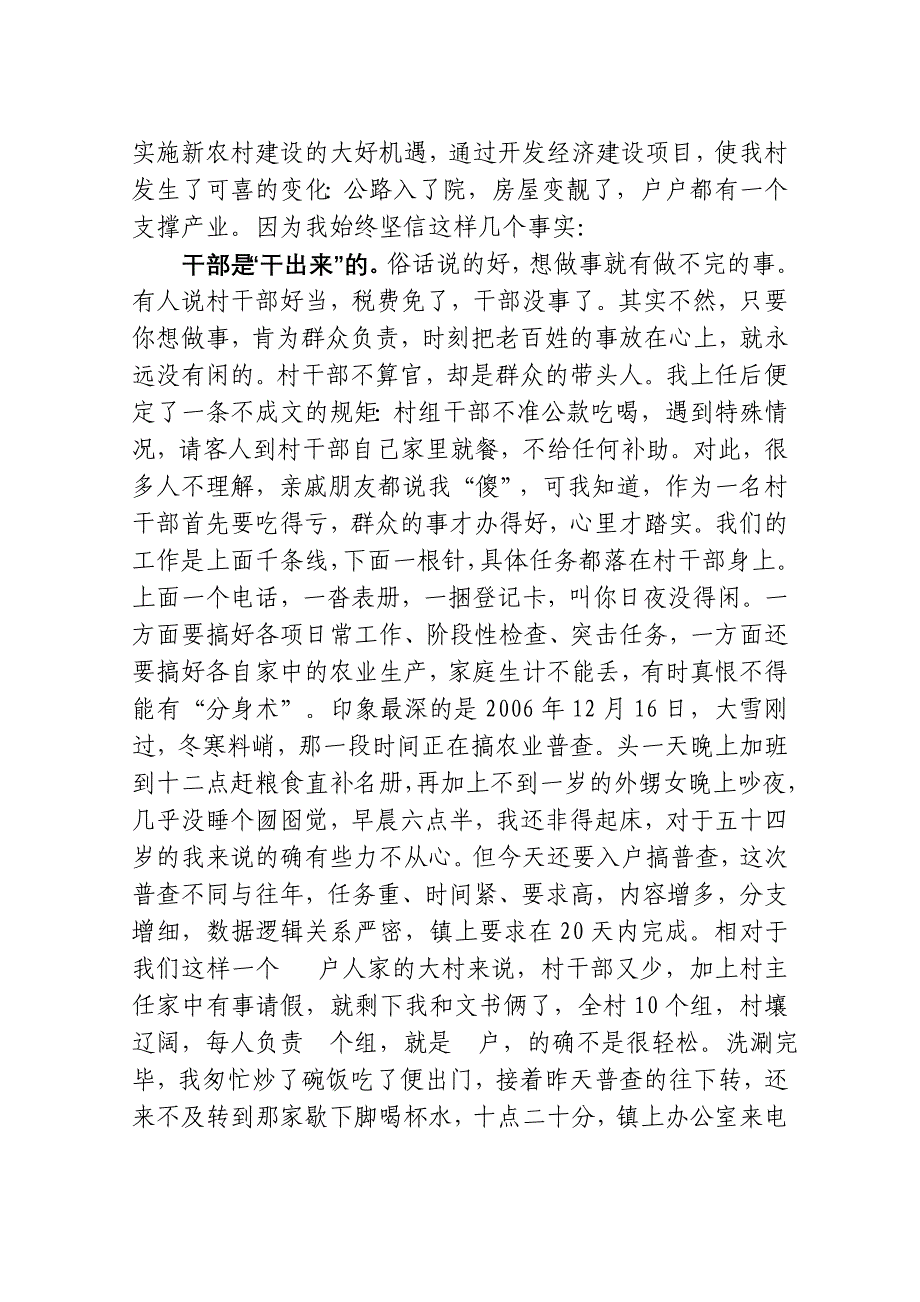 实施新农村建设的大好机遇，通过开发经济建设项目，使我村
发生了可喜的变化：公路入了院，房屋变靓了，户户都有一个
支撑产业。因为我始终坚信这样几个事实：
干部是“干出来”的。俗话说的好，想做事就有做不完的事。
有人说村干部好当，税费免了，干部没事了。其实不然，只要
你想做事，肯为群众负责，时刻把老百姓的事放在心上，就永
远没有闲的。村干部不算官，却是群众的带头人。我上任后便
定了一条不成文的规矩：村组干部不准公款吃喝，遇到特殊情
况，请客人到村干部自己家里就餐，不给任何补助。对此，很
多人不理解，亲戚朋友都说我“傻”，可我知道，作为一名村
干部首先要吃得亏，群众的事才办得好，心里才踏实。我们的
工作是上面千条线，下面一根针，具体任务都落在村干部身上。
上面一个电话，一沓表册，一捆登记卡，叫你日夜没得闲。一
方面要搞好各项日常工作、阶段性检查、突击任务，一方面还
要搞好各自家中的农业生产，家庭生计不能丢，有时真恨不得
能有“分身术”。印象最深的是 2006 年 12 月 16 日，大雪刚
过，冬寒料峭，那一段时间正在搞农业普查。头一天晚上加班
到十二点赶粮食直补名册，再加上不到一岁的外甥女晚上吵夜，
几乎没睡个囫囵觉，早晨六点半，我还非得起床，对于五十四
岁的我来说的确有些力不从心。但今天还要入户搞普查，这次
普查不同与往年，任务重、时间紧、要求高，内容增多，分支
增细，数据逻辑关系严密，镇上要求在 20 天内完成。相对于
我们这样一个 户人家的大村来说，村干部又少，加上村主
任家中有事请假，就剩下我和文书俩了，全村 10 个组，村壤
辽阔，每人负责 个组，就是 户，的确不是很轻松。洗涮完
毕，我匆忙炒了碗饭吃了便出门，接着昨天普查的往下转，还
来不及转到那家歇下脚喝杯水，十点二十分，镇上办公室来电